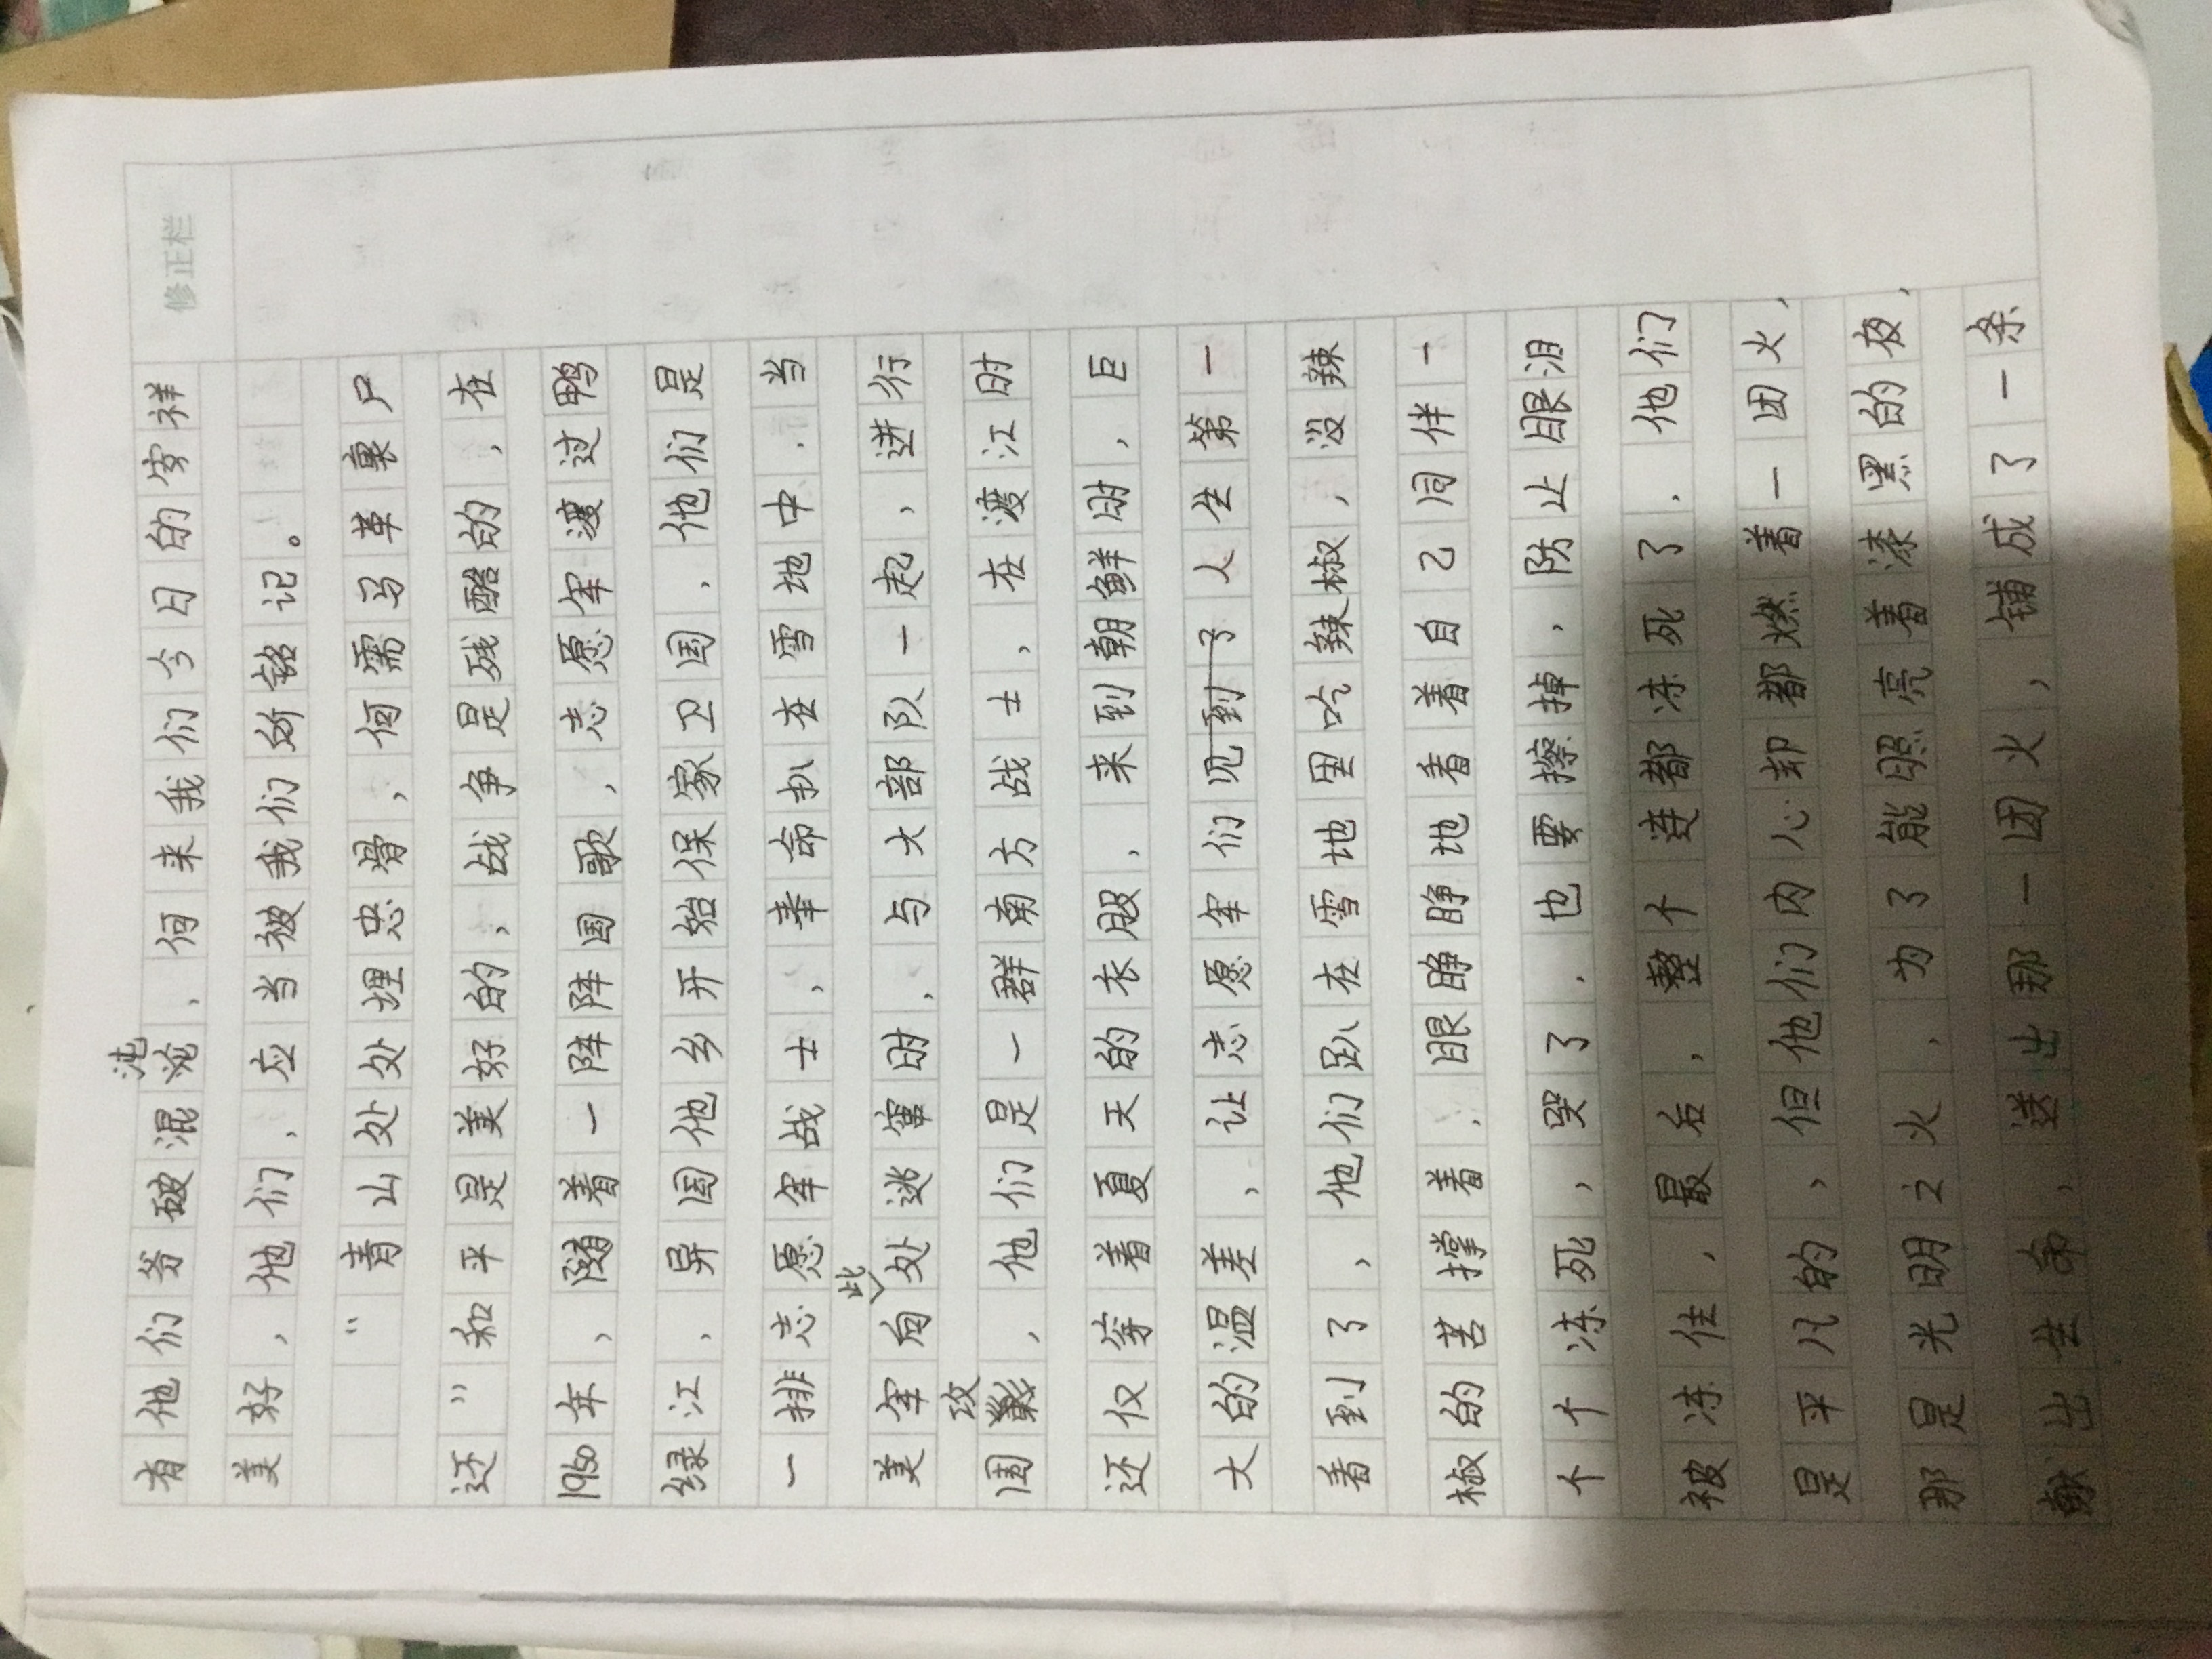 修正栏
有他们劈破混沌，何来我们今日的安祥
美好，他们，应当被我们所铭记。
“青山处处埋忠骨，何需马革裹尸
还”和平是美好的，战争是残酷的，在
1950年，随着一阵阵国歌，志愿军渡过鸭
绿江，异国他乡开始保家卫国，他们是
一排志愿军战士，奉命扒在雪地中，当
美军向此处逃窜时，与大部队一起，进行
围攻，他们是一群南方战士，在渡江时
还仅穿着夏天的衣服，来到朝鲜时，巨
大的温差，让志愿军们见到了人生第一
看到了，他们趴在雪地里吃辣椒，没辣
椒的苦撑着，眼睁睁地看着自己同伴一
个个冻死，哭了，也要擦掉，防止眼泪
被冻住，最后，整个连都冻死了，他们
是平凡的，但他们内心却都燃着一团火，
那是光明之火，为了能照亮着漆黑的夜，
献出生命，送出那一团火，铺成了一条